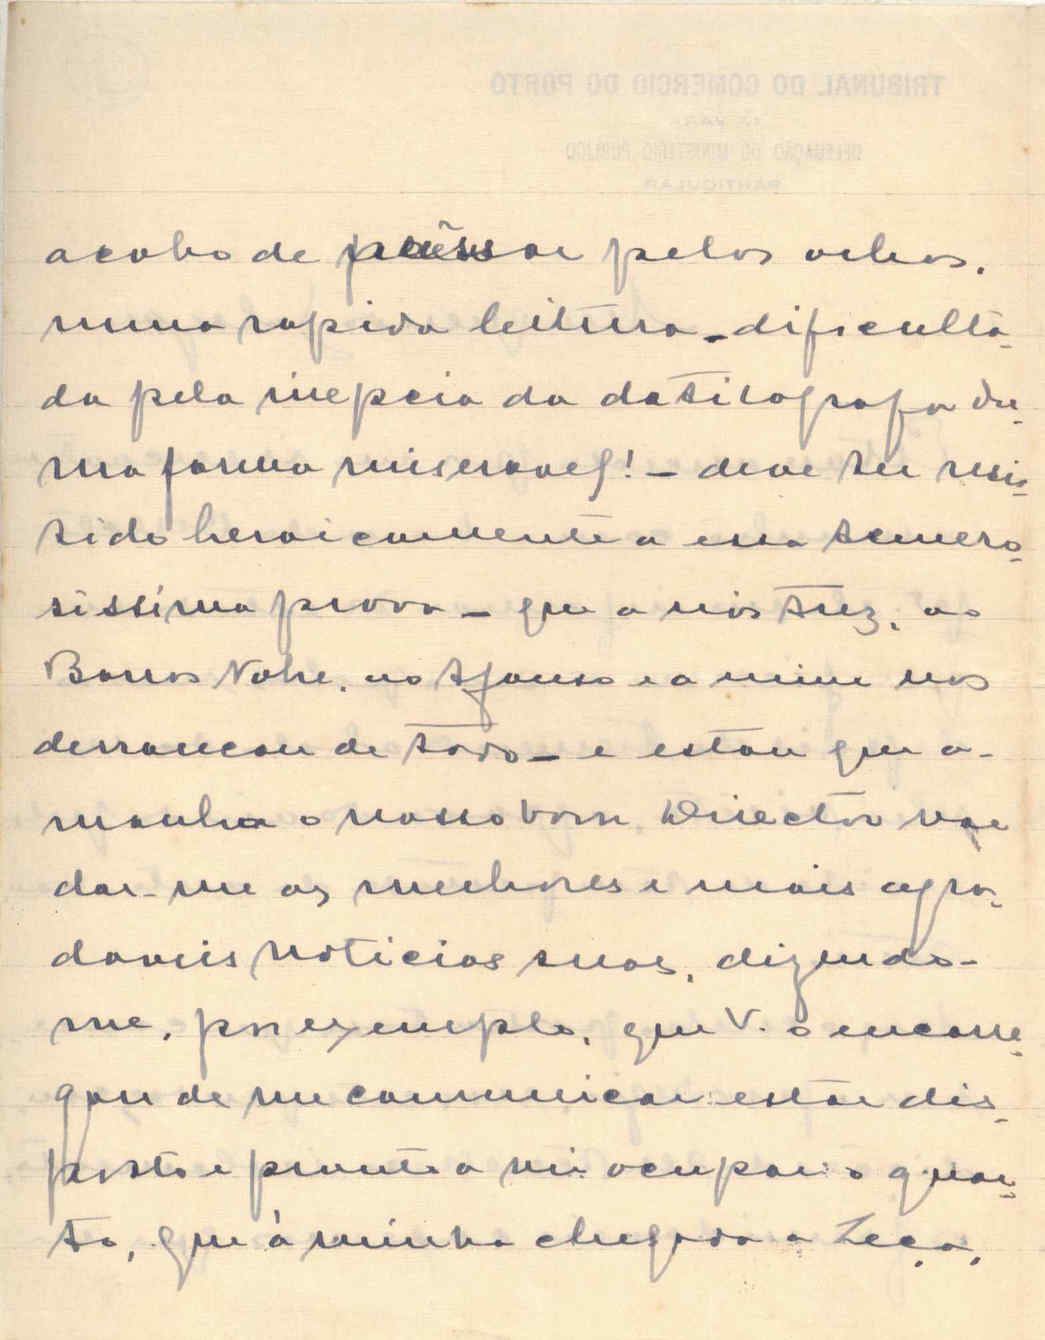 acabo de passar pelos olhos,
numa rapida leitura – dificulta-
da pela inepcia da datilografa du-
ma forma miseravel! – deve ter resis-
tido heroicamente a essa temero-
sissima prova – que a nós trez, ao
Barros Nobre, ao Afonso e a mim nos
derrancou de todo – e estou que a-
manha o nosso bom Director vae
dar-me as melhores e mais agra-
daveis noticias suas, dizendo-
me, por exemplo, que V. o encarre-
gou de me comunicar estar dis-
posto e pronto a vir ocupar o quar-
to, que á minha chegada a Leça,